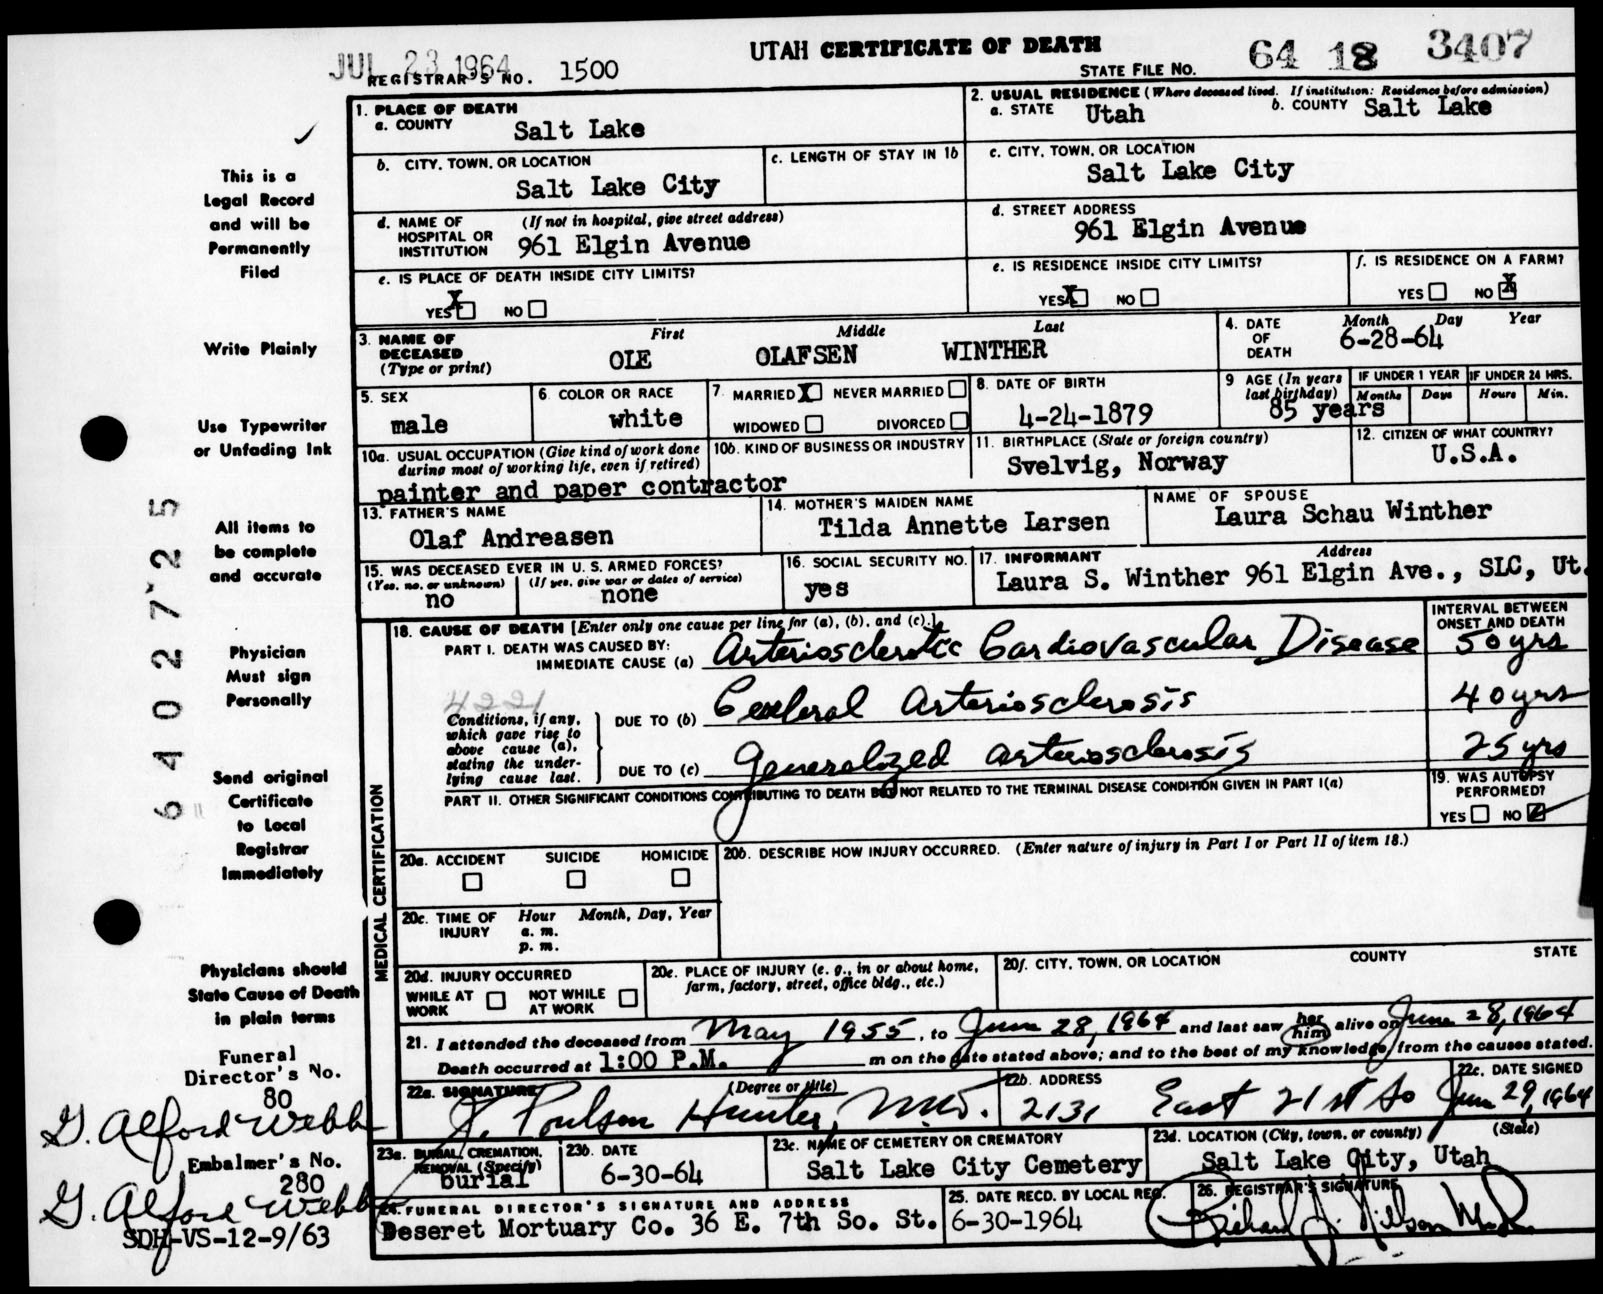 JUL 23 1964
UTAH CERTIFICATE OF DEATH
64 18 3407
REGISTRAR'S NO. 1500
STATE FILE NO.
This is a
Legal Record
and will be
Permanently
Filed
Write Plainly
Use Typewriter
or Unfading Ink
All items to
be complete
and accurate
Physician
Must sign
Personally
Send original
Certificate
to Local
Registrar
Immediately
Physicians should
State Cause of Death
in plain terms
Funeral
Director's No.
80
G. Alford Webb
Embalmer's No.
280
G. Alford Webb
SDH-VS-12-9/63
6402725
1. PLACE OF DEATH
a. COUNTY Salt Lake
2. USUAL RESIDENCE (Where deceased lived. If institution: Residence before admission)
a. STATE Utah b. COUNTY Salt Lake
b. CITY, TOWN, OR LOCATION Salt Lake City
c. LENGTH OF STAY IN 1b
c. CITY, TOWN, OR LOCATION Salt Lake City
d. NAME OF HOSPITAL OR INSTITUTION (If not in hospital, give street address) 961 Elgin Avenue
d. STREET ADDRESS 961 Elgin Avenue
e. IS PLACE OF DEATH INSIDE CITY LIMITS?
YES X NO
e. IS RESIDENCE INSIDE CITY LIMITS?
YES X NO
f. IS RESIDENCE ON A FARM?
YES NO X
3. NAME OF DECEASED (Type or print)
First Middle Last
OLE OLAFSEN WINTHER
4. DATE OF DEATH
Month Day Year
6-28-64
5. SEX male
6. COLOR OR RACE white
7. MARRIED X NEVER MARRIED
WIDOWED DIVORCED
8. DATE OF BIRTH 4-24-1879
9 AGE (In years last birthday) 85 years
IF UNDER 1 YEAR Months Days
IF UNDER 24 HRS. Hours Min.
10a. USUAL OCCUPATION (Give kind of work done during most of working life, even if retired)
painter and paper contractor
10b. KIND OF BUSINESS OR INDUSTRY
11. BIRTHPLACE (State or foreign country) Svelvig, Norway
12. CITIZEN OF WHAT COUNTRY? U.S.A.
13. FATHER'S NAME Olaf Andreasen
14. MOTHER'S MAIDEN NAME Tilda Annette Larsen
NAME OF SPOUSE Laura Schau Winther
15. WAS DECEASED EVER IN U. S. ARMED FORCES?
(Yes, no, or unknown) no
(If yes, give war or dates of service) none
16. SOCIAL SECURITY NO. yes
17. INFORMANT Address
Laura S. Winther 961 Elgin Ave., SLC, Ut.
MEDICAL CERTIFICATION
18. CAUSE OF DEATH [Enter only one cause per line for (a), (b), and (c).]
INTERVAL BETWEEN ONSET AND DEATH
PART I. DEATH WAS CAUSED BY:
IMMEDIATE CAUSE (a) Arteriosclerotic Cardiovascular Disease 50 yrs
4221
Conditions, if any, which gave rise to above cause (a), stating the underlying cause last.
DUE TO (b) Cerebral Arteriosclerosis 40 yrs
DUE TO (c) Generalized arteriosclerosis 25 yrs
PART II. OTHER SIGNIFICANT CONDITIONS CONTRIBUTING TO DEATH BUT NOT RELATED TO THE TERMINAL DISEASE CONDITION GIVEN IN PART I(a)
19. WAS AUTOPSY PERFORMED?
YES NO
20a. ACCIDENT SUICIDE HOMICIDE
20b. DESCRIBE HOW INJURY OCCURRED. (Enter nature of injury in Part I or Part II of item 18.)
20c. TIME OF INJURY Hour a. m. p. m. Month, Day, Year
20d. INJURY OCCURRED
WHILE AT WORK NOT WHILE AT WORK
20e. PLACE OF INJURY (e. g., in or about home, farm, factory, street, office bldg., etc.)
20f. CITY, TOWN, OR LOCATION COUNTY STATE
21. I attended the deceased from May 1955, to June 28, 1964 and last saw her him alive on June 28, 1964
Death occurred at 1:00 P.M. m on the date stated above; and to the best of my knowledge, from the causes stated.
22a. SIGNATURE (Degree or title)
J. Poulson Hunter, M.D.
22b. ADDRESS
2131 East 21st So
22c. DATE SIGNED
June 29, 1964
23a. BURIAL, CREMATION, REMOVAL (Specify) burial
23b. DATE 6-30-64
23c. NAME OF CEMETERY OR CREMATORY
Salt Lake City Cemetery
23d. LOCATION (City, town, or county) (State)
Salt Lake City, Utah
24. FUNERAL DIRECTOR'S SIGNATURE AND ADDRESS
Deseret Mortuary Co. 36 E. 7th So. St.
25. DATE RECD. BY LOCAL REG.
6-30-1964
26. REGISTRAR'S SIGNATURE
Richard J. Nilson M.D.